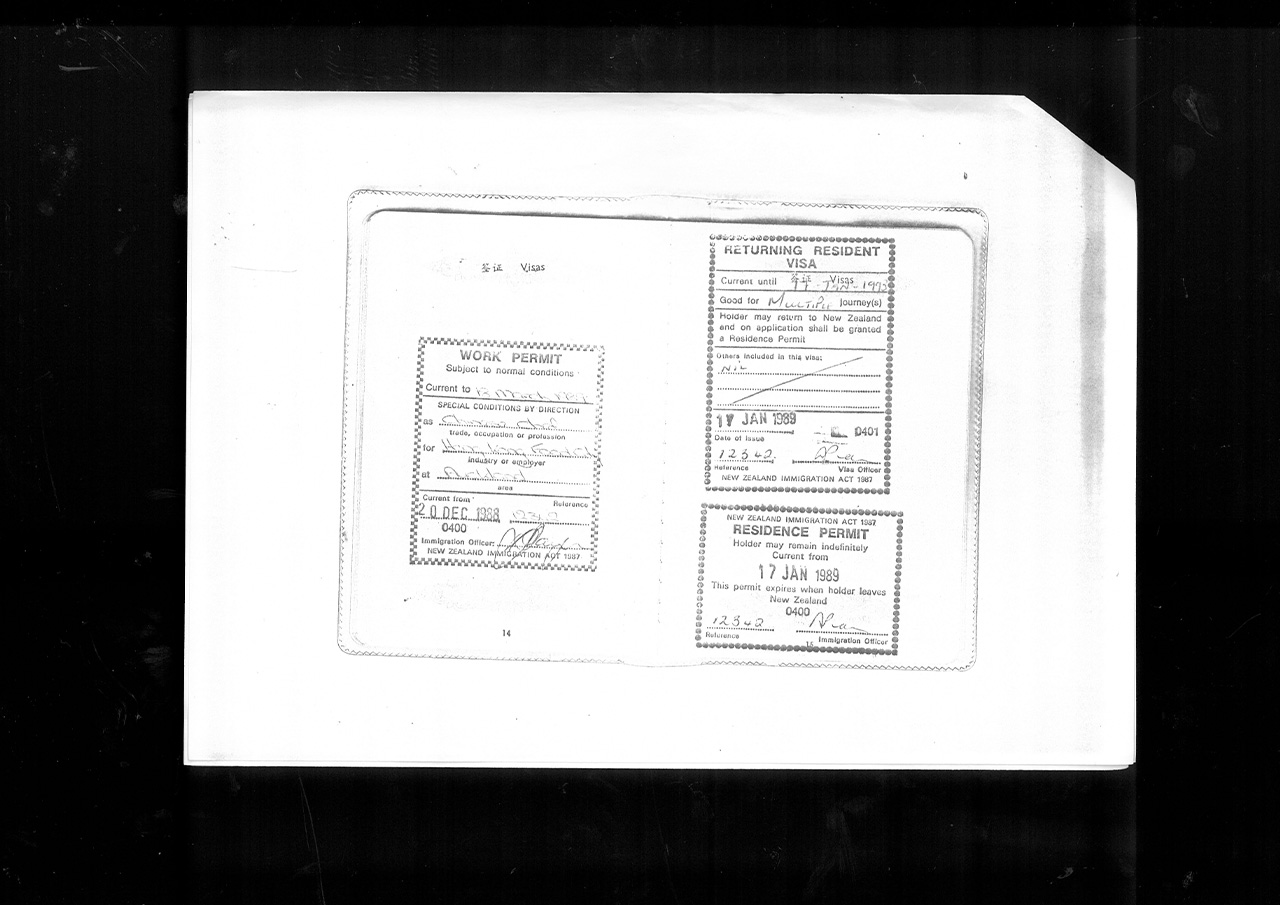 签证 Visas
WORK PERMIT
Subject to normal conditions
Current to
SPECIAL CONDITIONS BY DIRECTION
as
trade, occupation or profession
for
industry or employer
at
area
Current from Reference
20 DEC 1988
0400
Immigration Officer:
NEW ZEALAND IMMIGRATION ACT 1987
14
RETURNING RESIDENT
VISA
签证 Visas
Current until JAN 1992
Good for MULTIPLE journey(s)
Holder may return to New Zealand
and on application shall be granted
a Residence Permit
Others included in this visa:
NIL
17 JAN 1989
0401
Date of Issue
12342
Reference Visa Officer
NEW ZEALAND IMMIGRATION ACT 1987
NEW ZEALAND IMMIGRATION ACT 1987
RESIDENCE PERMIT
Holder may remain indefinitely
Current from
17 JAN 1989
This permit expires when holder leaves
New Zealand
0400
12342
Reference Immigration Officer
15